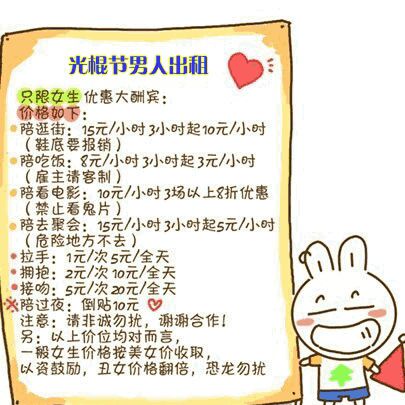 光棍节男人出租
只限女生 优惠大酬宾:
价格如下:
陪逛街: 15元/小时 3小时起10元/小时
(鞋底要报销)
陪吃饭: 8元/小时 3小时起3元/小时
(雇主请客制)
陪看电影: 10元/小时 3场以上8折优惠
(禁止看鬼片)
陪去聚会: 15元/小时 3小时起5元/小时
(危险地方不去)
拉手: 1元/次 5元/全天
拥抱: 2元/次 10元/全天
接吻: 5元/次 20元/全天
※陪过夜: 倒贴10元
注意: 请非诚勿扰, 谢谢合作!
另: 以上价位均对而言,
一般女生价格按美女价收取,
以资鼓励, 丑女价格翻倍, 恐龙勿扰